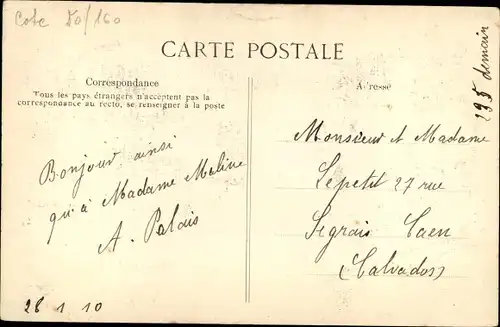 Cote 80/160
CARTE POSTALE
Correspondance
Tous les pays étrangers n'acceptent pas la
correspondance au recto, se renseigner à la poste
Bonjour ainsi
qu'à Madame Moline
A. Palais
28 1 10
Adresse
295 demain
Monsieur et Madame
Lepetit 27 rue
Segrais Caen
(Calvados)